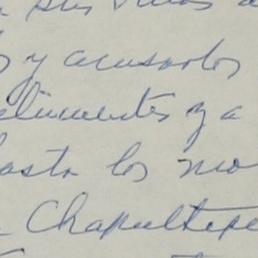 a sus
y acusarlos
alimentos y a
hasta los mo
Chapultepe